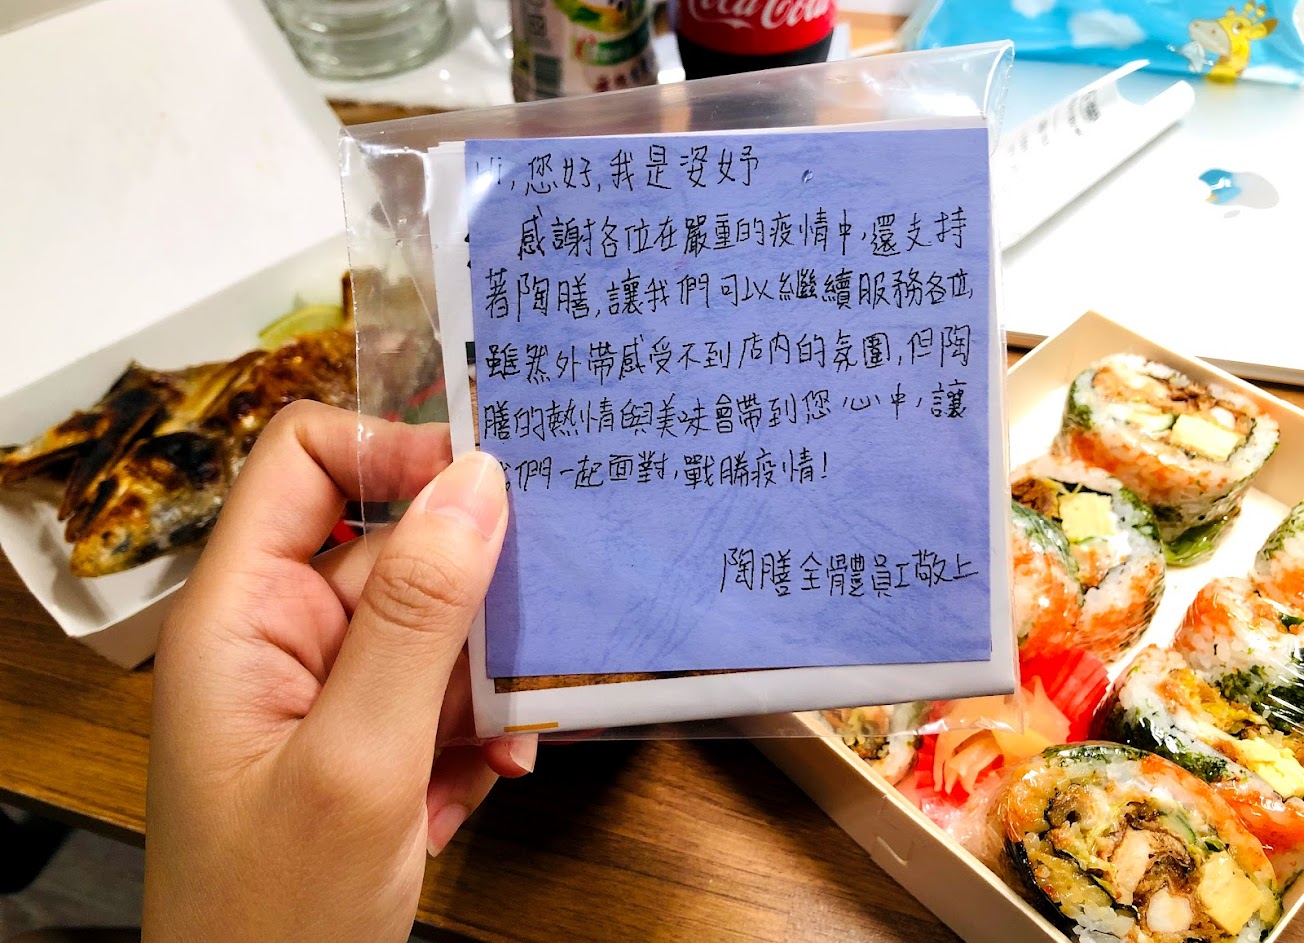 Coca-Cola
Hi,您好,我是姿妤
感謝各位在嚴重的疫情中,還支持
著陶膳,讓我們可以繼續服務各位,
雖然外帶感受不到店內的氛圍,但陶
膳的熱情與美味會帶到您心中,讓
我們一起面對,戰勝疫情!
陶膳全體員工敬上